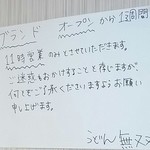 ブランド オープン から 1週間
11時営業のみとさせていただきます。
ご迷惑をおかけすることと存じますが、
何とぞご了承くださいますようお願い
申し上げます。
うどん 無